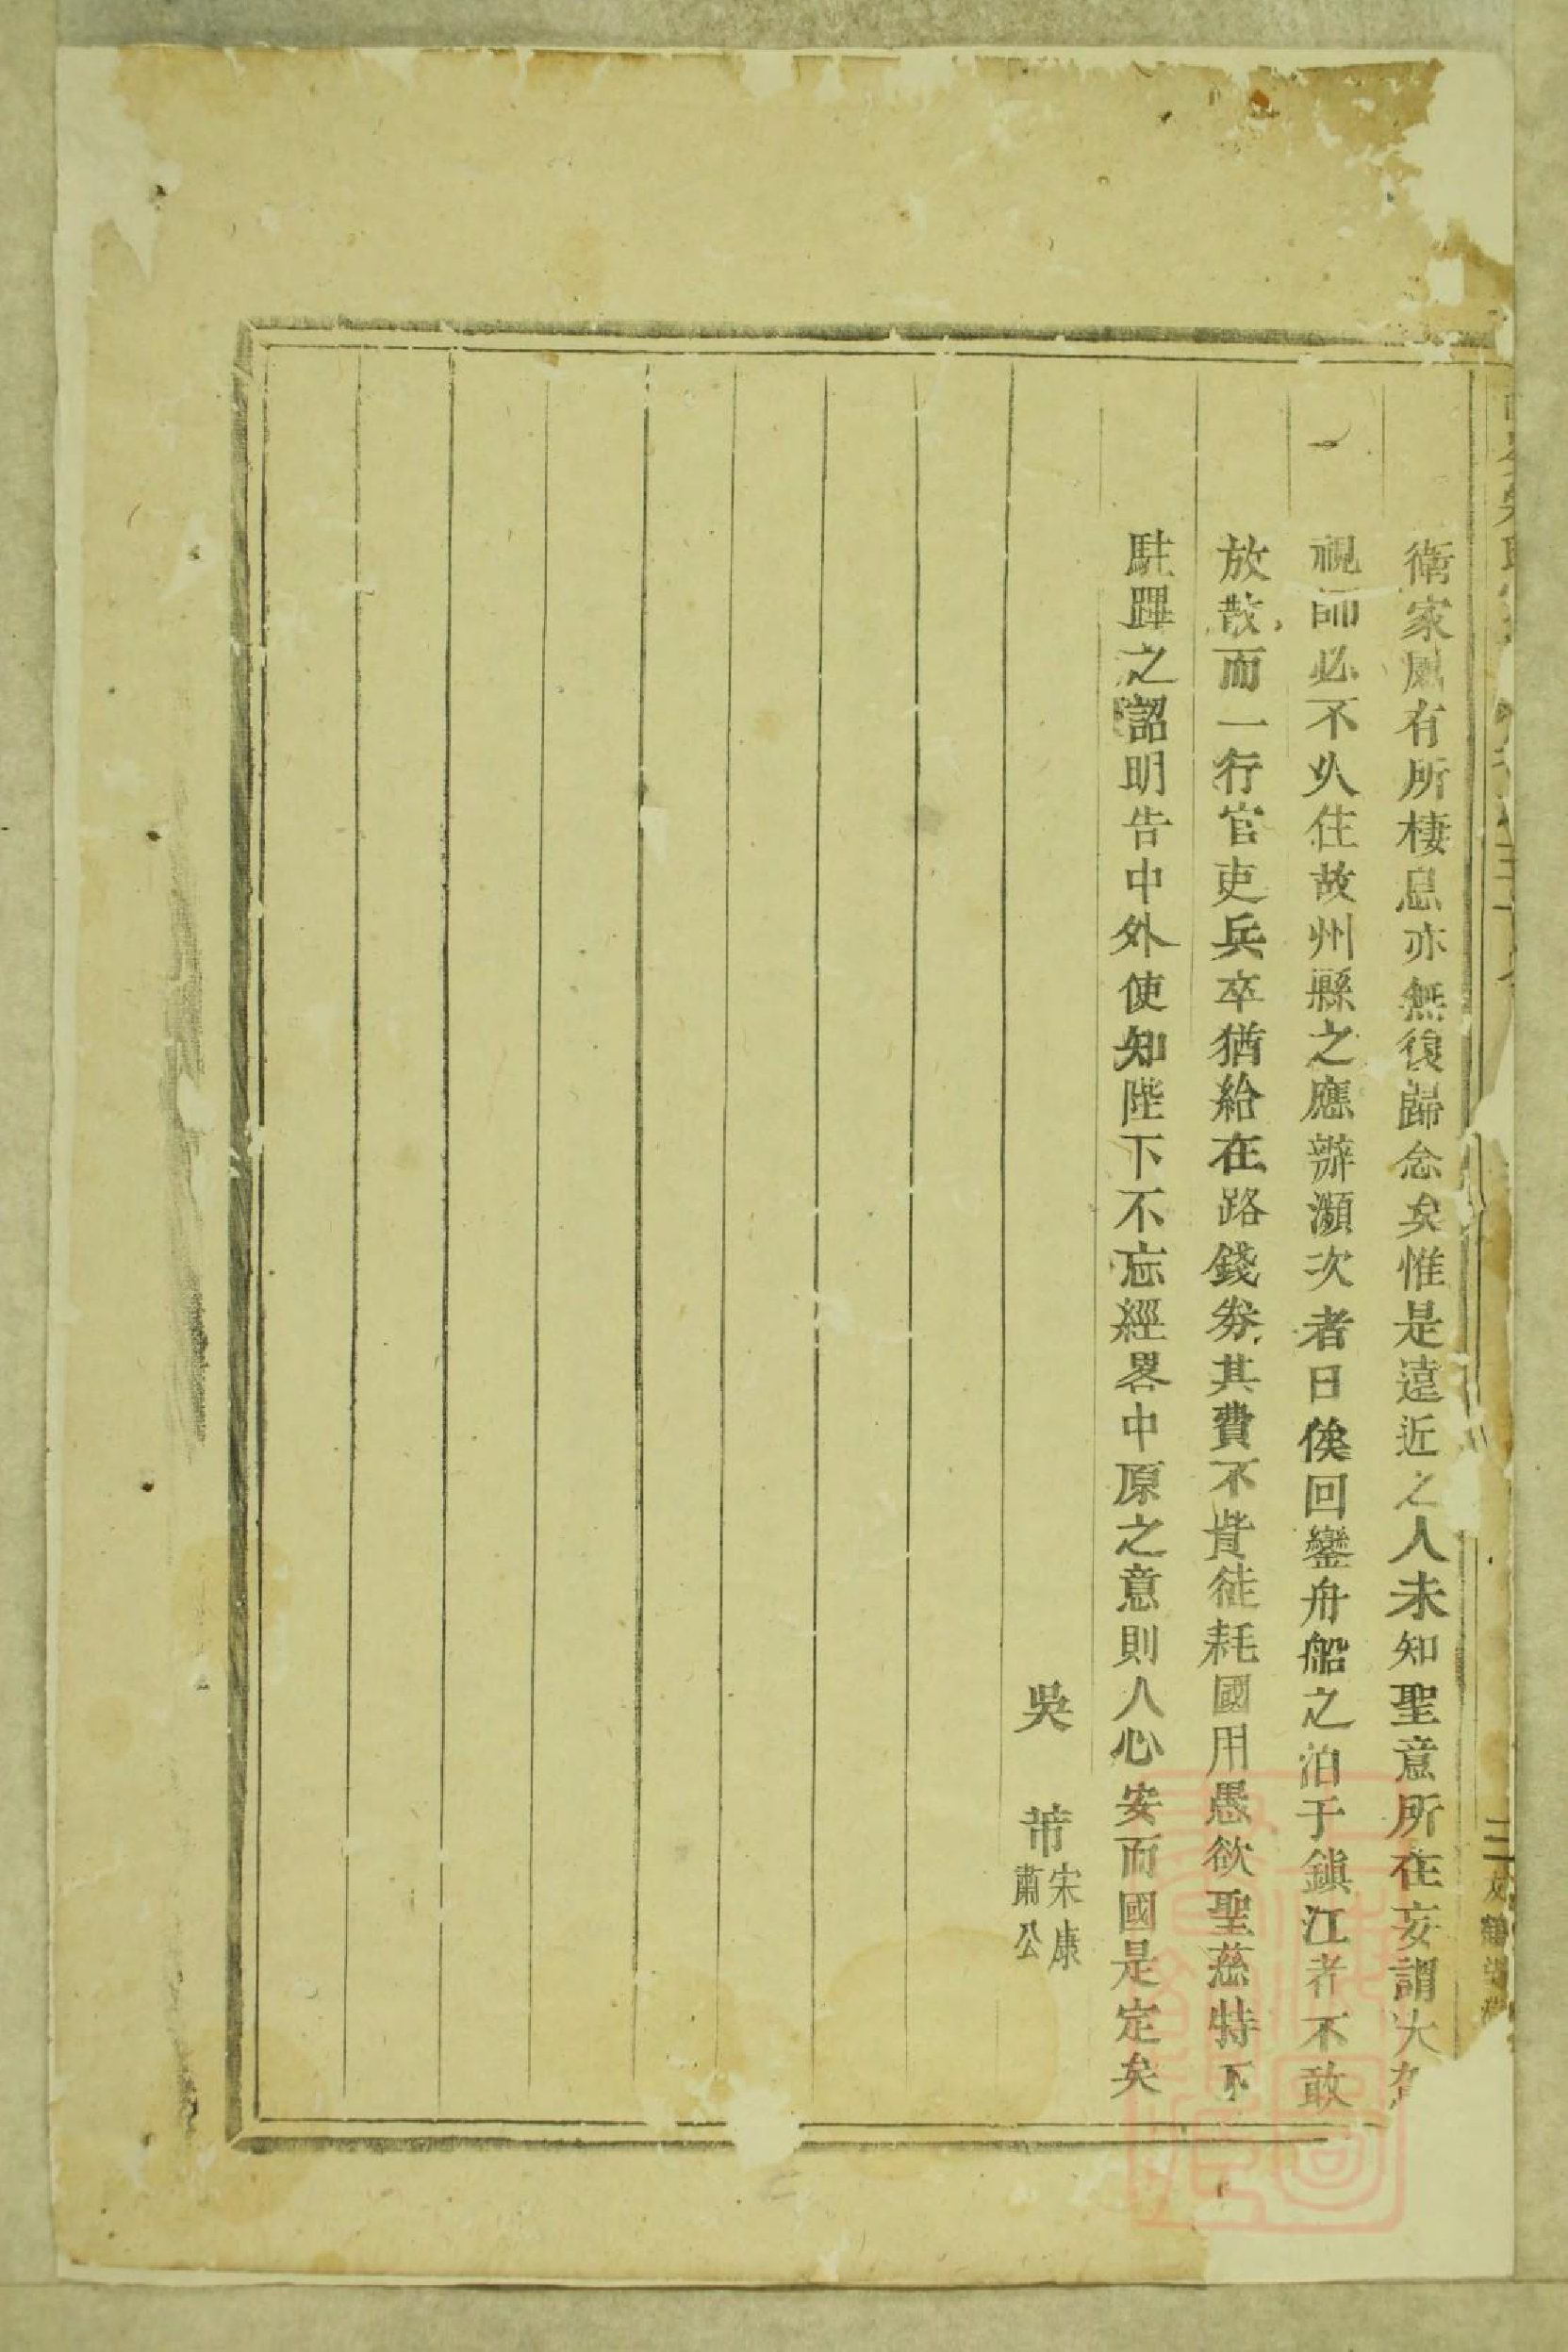 衛家屬有所棲息亦無復歸念矣惟是遠近之人未知聖意所在妄謂大駕
視師必不久住故州縣之應辦灝次者日俟回鑾舟船之泊于鎮江者不敢
放散而一行官吏兵卒猶給在路錢劵其費不貲徒耗國用愚欲聖慈特下
駐蹕之詔明告中外使知陛下不忘經畧中原之意則人心安而國是定矣
吳 芾宋康肅公
三